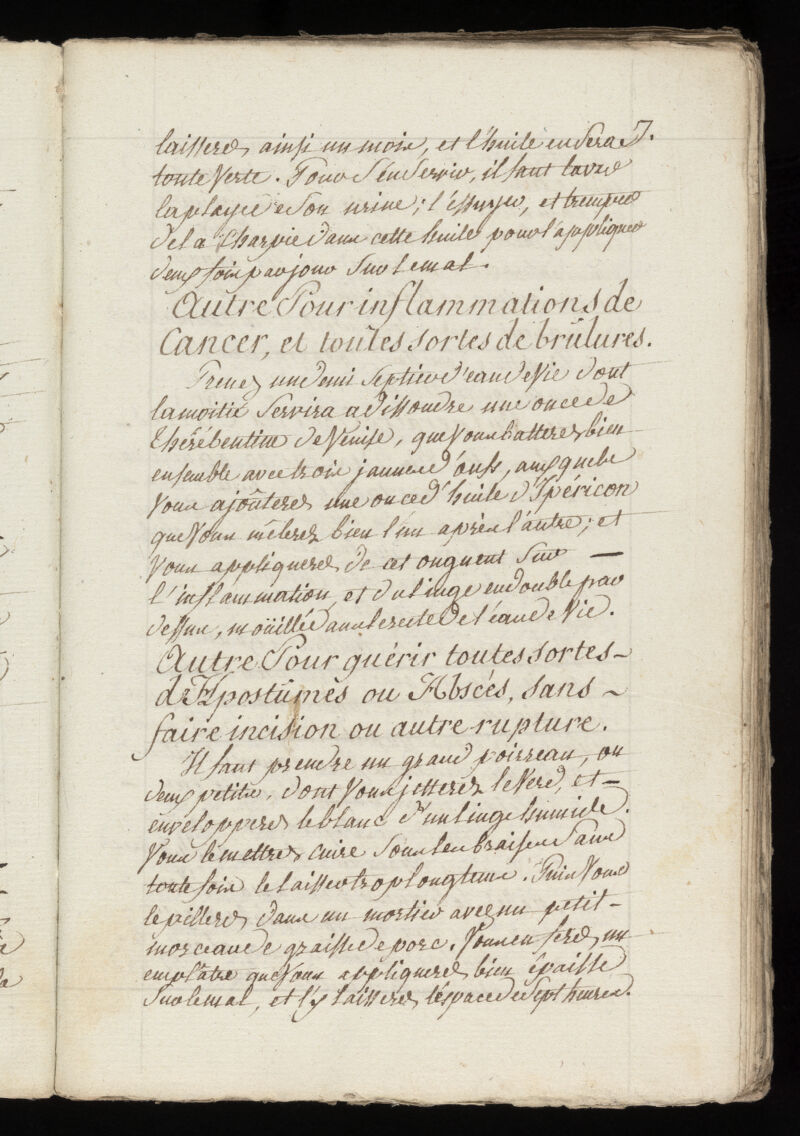 7.
laisserez ainsi un mois, et l'huile en sera
toute verte. Pour s'en servir, il faut laver
la playe de son urine; l'éssuyer, et tremper
de la Charpie dans cette huile pour l'appliquer
deux fois par jour sur le mal.
Autre Pour inflammations de
Cancer, et toutes sortes de brûlures.
Prenez un demi Septier d'eau de Vie dont
la moitié servira a dissoudre une once de
Thérébentine de Venise, que Vous batterez bien
ensemble avec trois jaunes d'oeufs, auxquels
Vous ajoûterez une once d'huile d'Ipéricon
que Vous mêlerez bien l'un après l'autre; et
Vous appliquerez de cet onguent sur —
l'inflammation, et du linge en double par
dessus, moüillé dans le reste de l'eau de Vie.
Autre Pour guérir toutes sortes-
d'Apostûmes ou Abscés, sans -
faire incision ou autre rupture.
Il faut prendre un grand poirreau, ou
deux petits, dont Vous jetterez le Verd, et-
envelopperez le blanc d'un linge humide.
Vous le mettrez cuire sous les braises sans
toute fois le laisser trop longtems. Puis Vous
le pillerez dans un mortier avec un petit-
morceau de graisse de porc. Vous en ferez un
emplâtre que Vous appliquerez bien épaisse
sur le mal, et l'y laisserez l'éspace de sept heures.